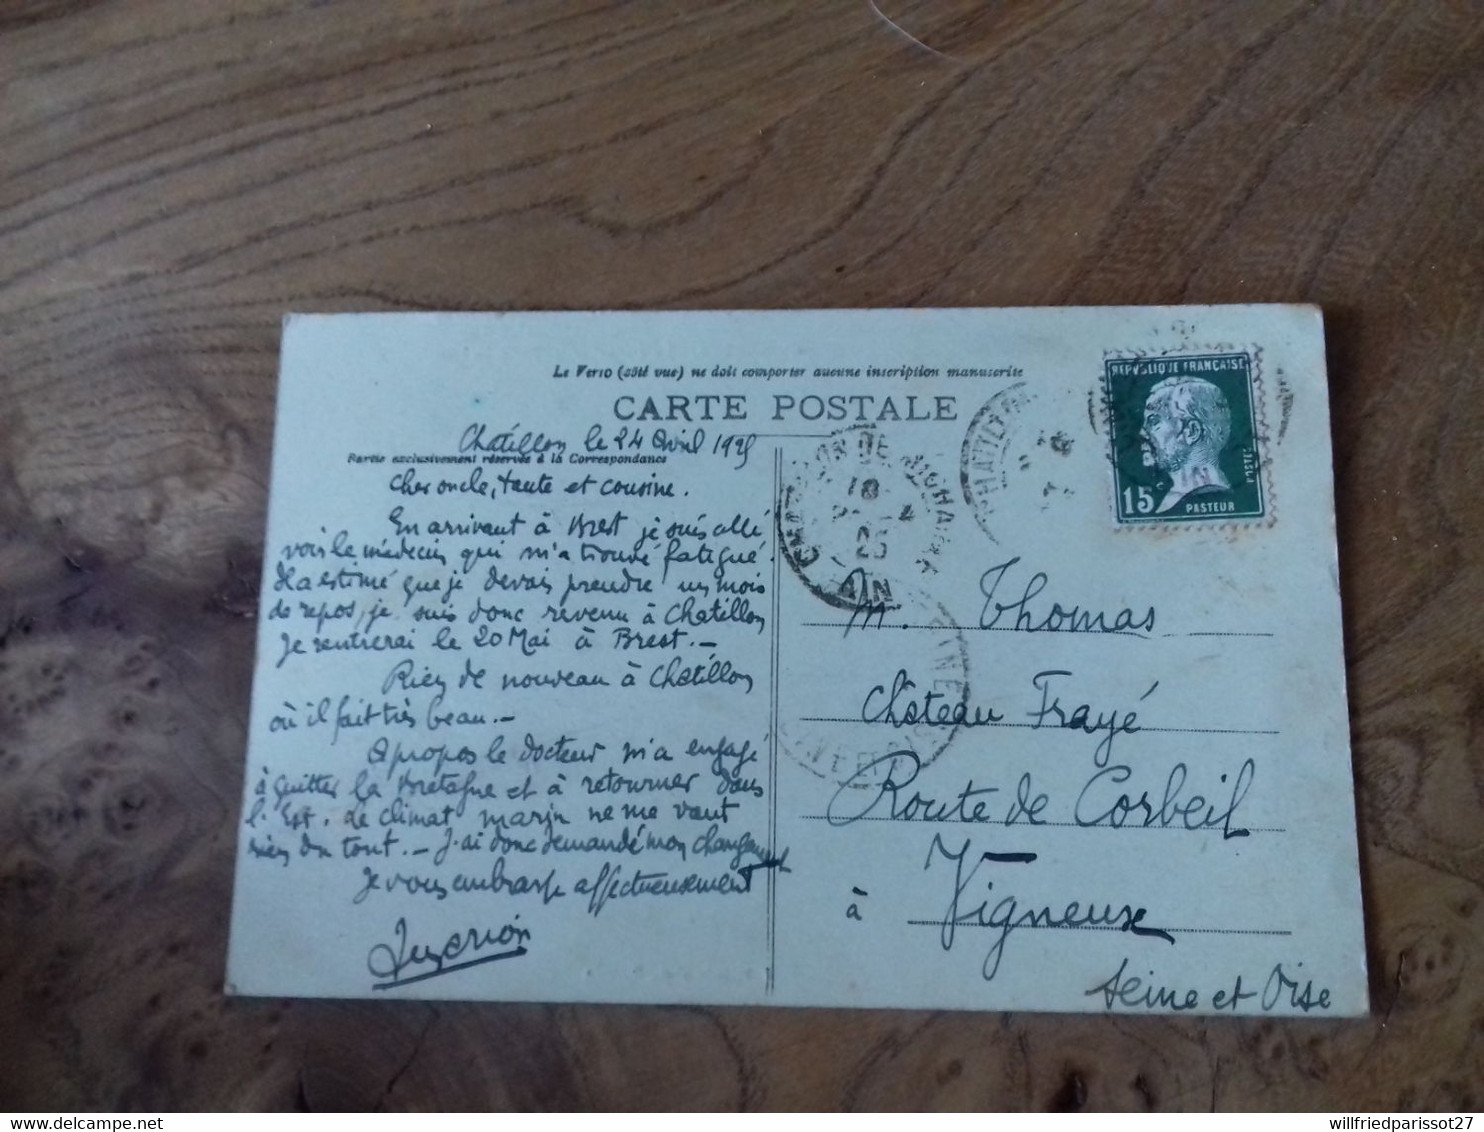 Le Verso (côté vue) ne doit comporter aucune inscription manuscrite
CARTE POSTALE
Châtillon le 24 Avril 1925
Partie exclusivement réservée à la Correspondance
Cher oncle, tante et cousine.
En arrivant à Brest je suis allé
voir le médecin qui m'a trouvé fatigué.
Il a estimé que je devais prendre un mois
de repos, je suis donc revenu à Chatillon
Je rentrerai le 20 Mai à Brest.-
Rien de nouveau à Chatillon
où il fait très beau.-
A propos le docteur m'a engagé
à quitter la Bretagne et à retourner dans
l'Est. le climat marin ne me vaut
rien du tout.- J'ai donc demandé mon changement
Je vous embrasse affectueusement
REPUBLIQUE FRANÇAISE
POSTES
15
PASTEUR
AIN
M. Thomas
Château Frayé
Route de Corbeil
à Vigneux
Seine et Oise
willfriedparissot27